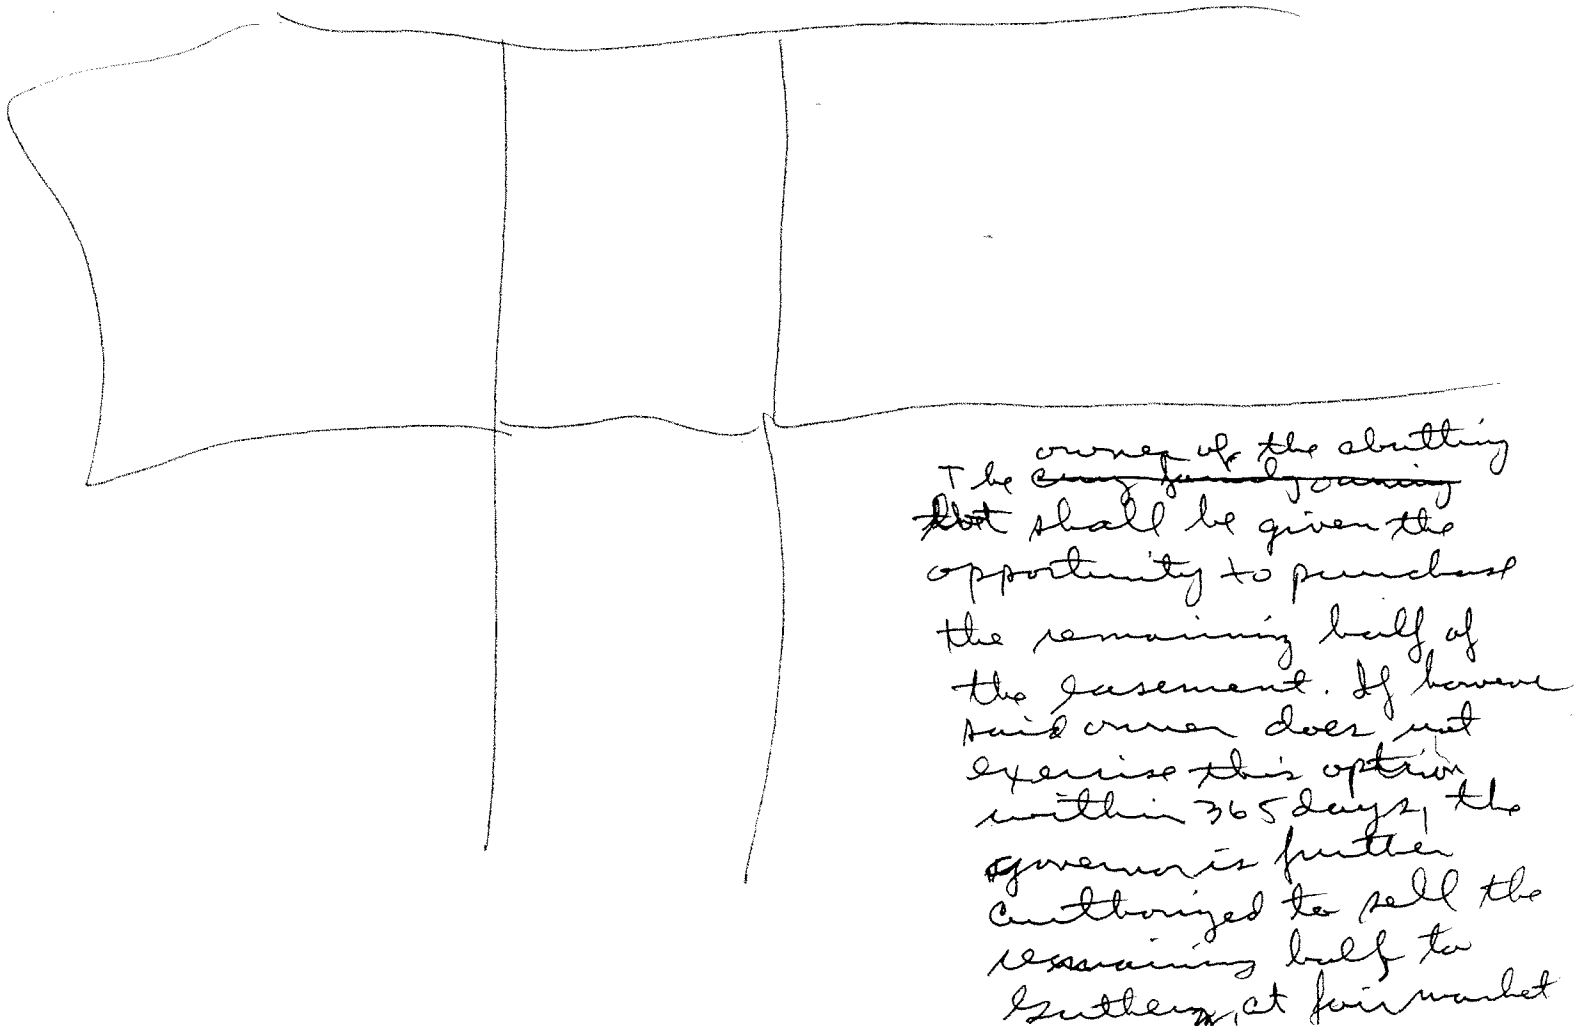 owner of the abutting
The
lot shall be given the
opportunity to purchase
the remaining half of
the easement. If however
said owner does not
exercise this option
within 365 days, the
governor is further
authorized to sell the
remaining half to
at fair market